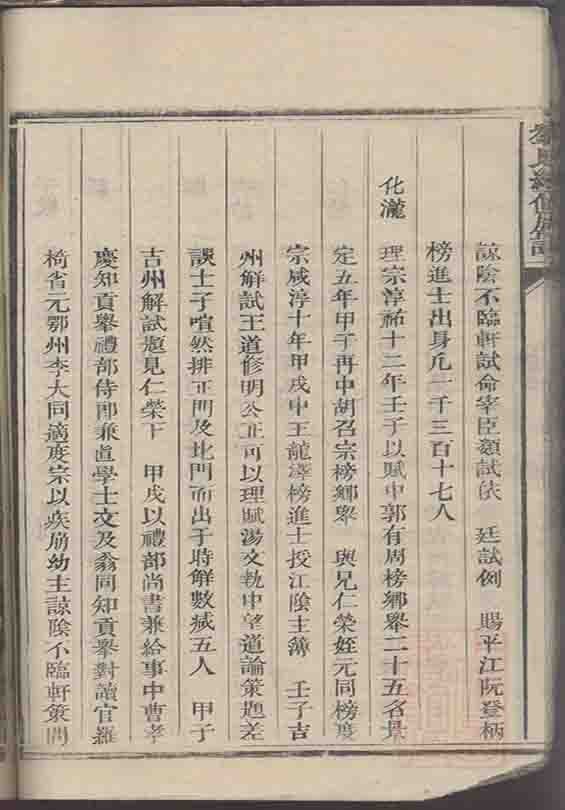 諒陰不臨軒試命宰臣類試依　廷試例　賜平江阮登柄
榜進士出身凡一千三百十七人
化瀧　理宗淳祐十二年壬子以賦中郭有周榜鄉舉二十五名景
定五年甲子再中胡召宗榜鄉舉　與兄仁榮姪元同榜度
宗咸淳十年甲戌中王龍澤榜進士授江陰主簿　壬子吉
州解試王道修明公正可以理賦湯文執中望道論策題差
誤士子喧然排正門及北門而出于時解數減五人　甲子
吉州解試題見仁榮下　甲戌以禮部尚書兼給事中曹孝
慶知貢舉禮部侍郎兼直學士文及翁同知貢舉對讀官羅
椅省元鄂州李大同適度宗以疾崩幼主諒陰不臨軒策問